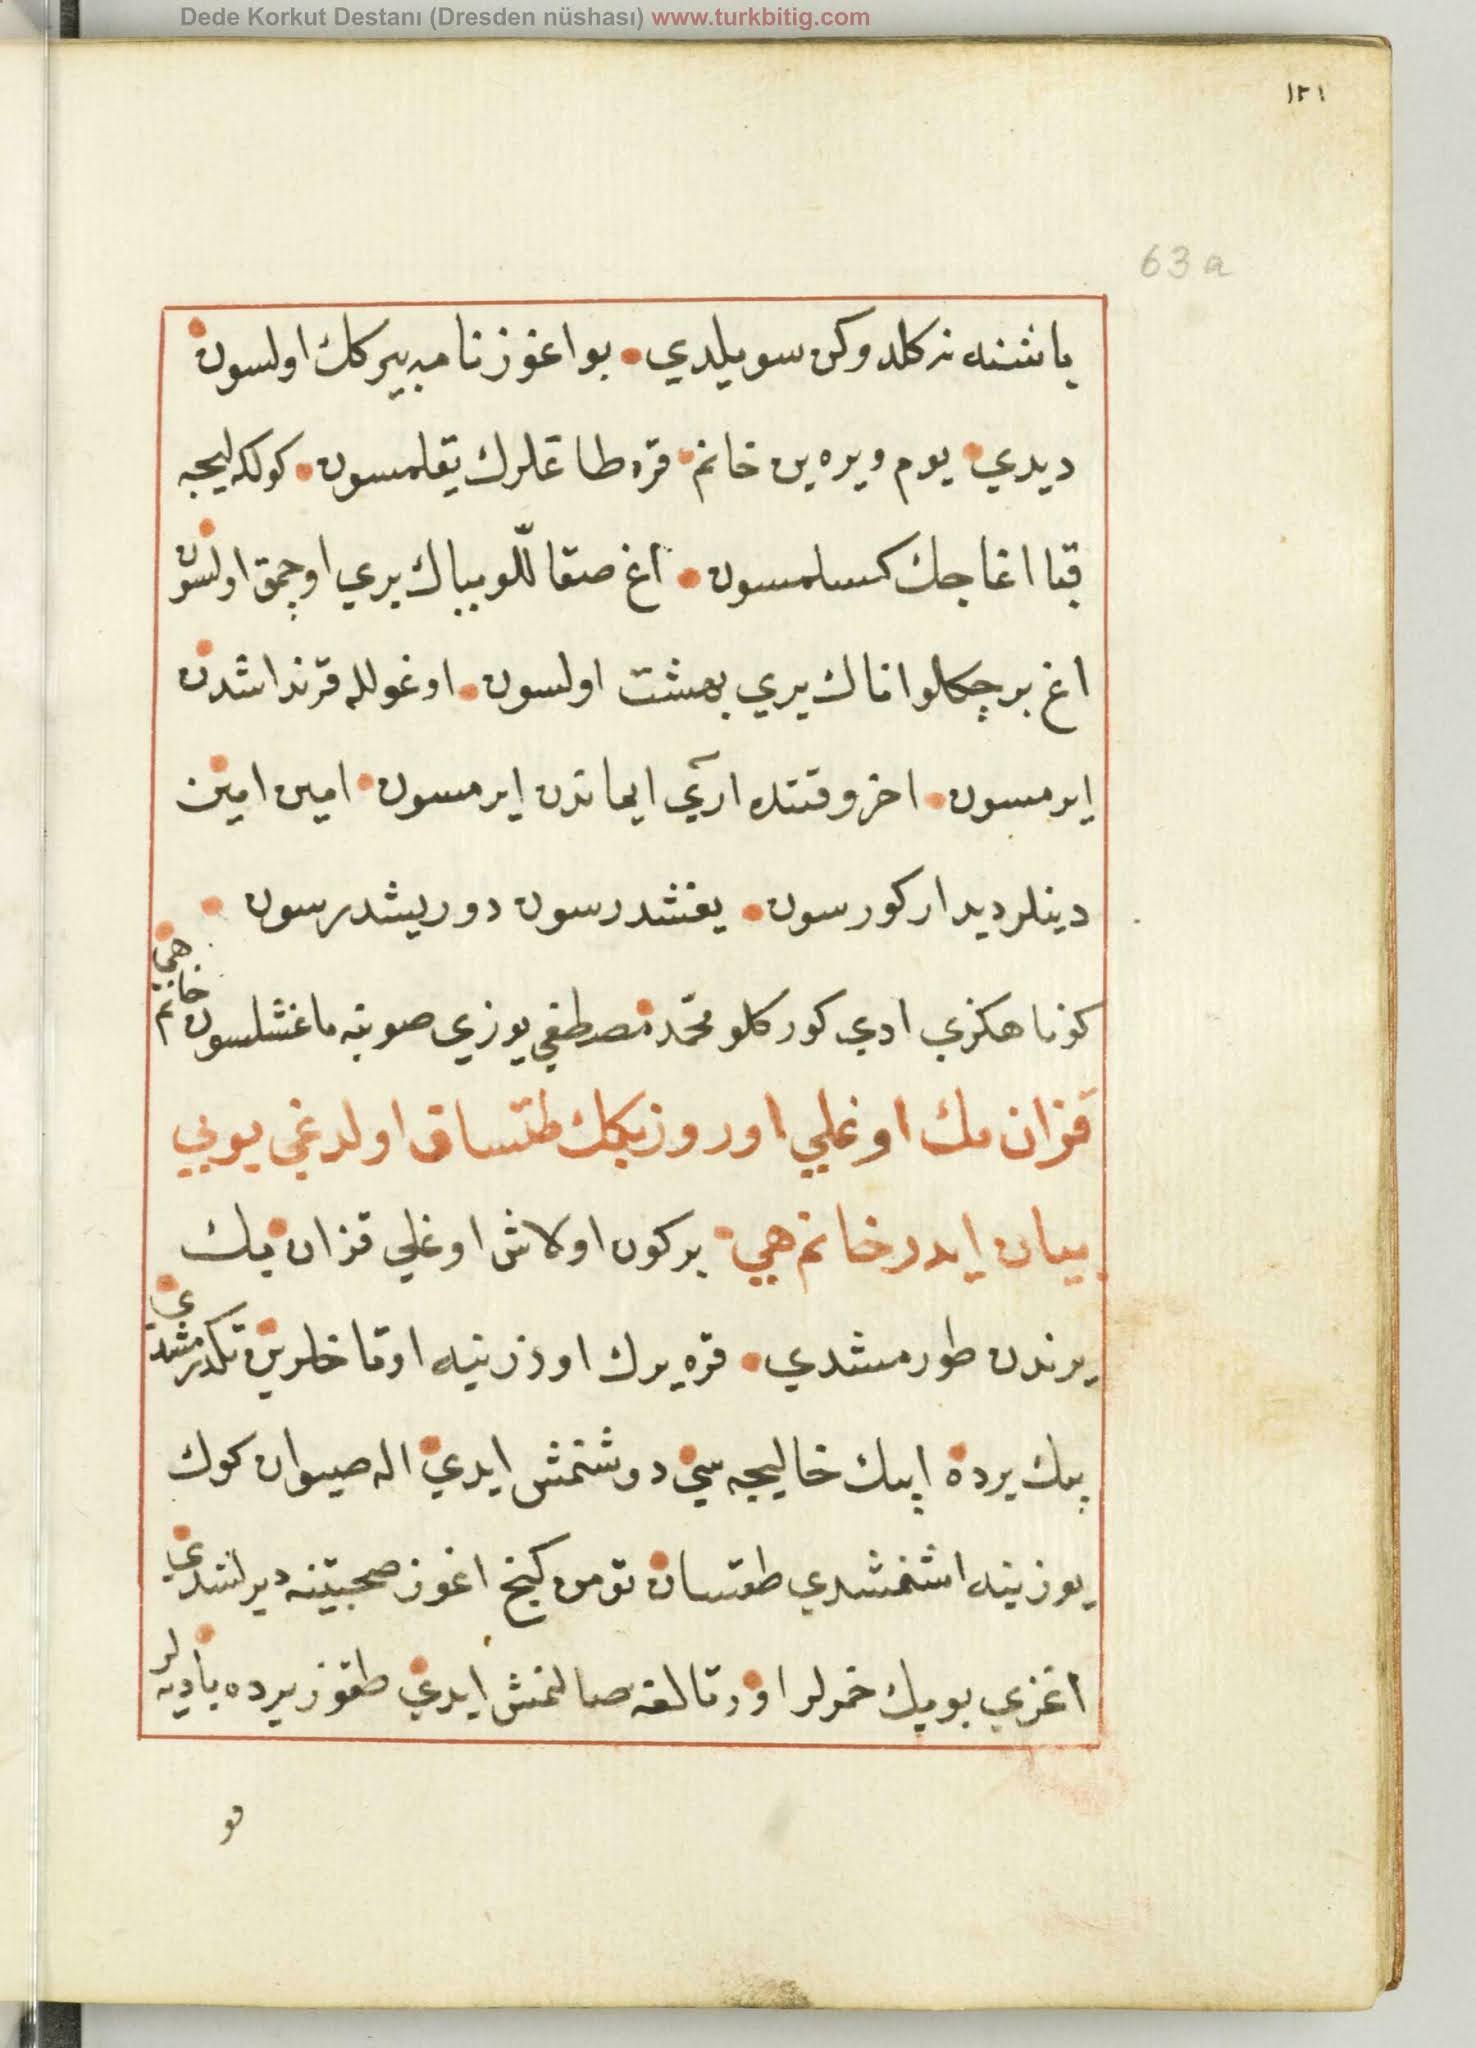 Dede Korkut Destanı (Dresden nüshası) www.turkbitig.com
١٢١
63a
باشنه نه كلدوكن سويلدي بو اغوزنامه بيركك اولسون
ديدي يوم ويره ين خانم قره طاغلرك يقلمسون كولكه ليجه
قبا اغاجك كسلمسون اغ صقاللو بباك يري اوچمق اولسون
اغ برچكلو اناك يري بهشت اولسون اوغولله قرنداشدن
ايرمسون اخر وقتنده اري ايماندن ايرمسون امين امين
دينلر ديدار كورسون يغشدرسون دوريشدرسون
كوناهكزي ادي كوركلو محمّد مصطفي يوزي صوينه باغشلسون خانم هي
قزان بك اوغلي اوروز بكك طتساق اولدغي بويي
بيان ايدر خانم هي بر كون اولاش اوغلي قزان بك
يرندن طورمشدي قره يرك اوزرينه اوتاخلرين تكدرمشدي
بيك يرده ايپك خاليجه سي دوشنمش ايدي اله صيوان كوك
يوزينه اشنمشدي طقسان تومن كنج اغوز صحبتنه ديرلشدي
اغزي بويك خمرلر اورتالغه صالنمش ايدي طقوز يرده باديه لر
قو